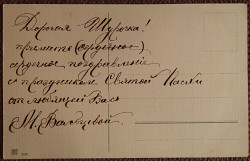 Дорогая Шурочка!
примите (сердечное)
сердечное поздравление
с праздником Святой Пасхи
от любящей Вас
М.